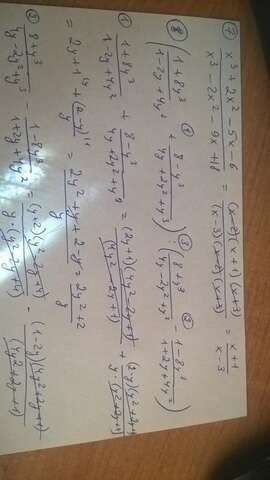 ⑦ (x³+2x²-5x-6)/(x³-2x²-9x+18) = ((x-2)(x+1)(x+3))/((x-3)(x-2)(x+3)) = (x+1)/(x-3)
⑧ ((1+8y³)/(1-2y+4y²) ① + (8-y³)/(4y+2y²+y³)) : ((8+y³)/(4y-2y²+y³) ② - (1-8y³)/(1+2y+4y²))
① (1+8y³)/(1-2y+4y²) + (8-y³)/(4y+2y²+y³) = ((2y+1)(4y²-2y+1))/(4y²-2y+1) + ((2-y)(y²+2y+4))/(y·(y²+2y+4))
= 2y+1 + (2-y)/y = (2y²+y+2-y)/y = (2y²+2)/y
② (8+y³)/(4y-2y²+y³) - (1-8y³)/(1+2y+4y²) = ((y+2)(y²-2y+4))/(y·(y²-2y+4)) - ((1-2y)(4y²+2y+1))/(4y²+2y+1)